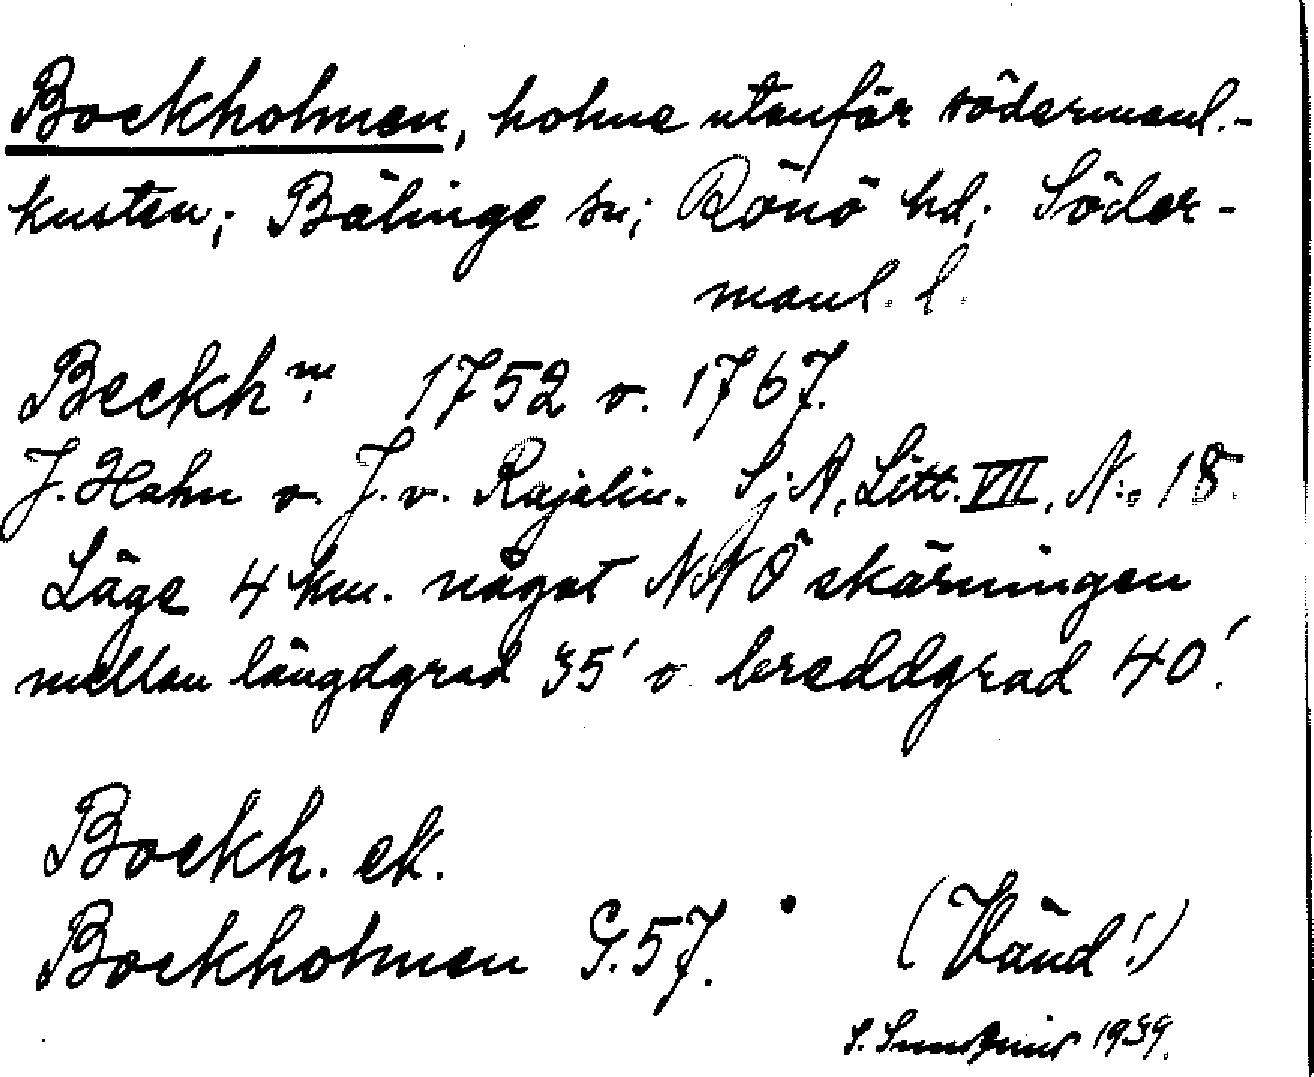 Bockholmen, holme utanför södermanl.-
kusten; Bälinge sn; Rönö hd; Söder-
manl. l.
Beckh.m 1752 o. 1767.
J. Hahn o. J. v. Rajalin. SjA, Litt. VII, N:o 18.
Läge 4 km. något NNÖ skärningen
mellan längdgrad 35' o breddgrad 40'.
Bockh. ek.
Bockholmen G.57.
(Vänd!)
S. 1939.